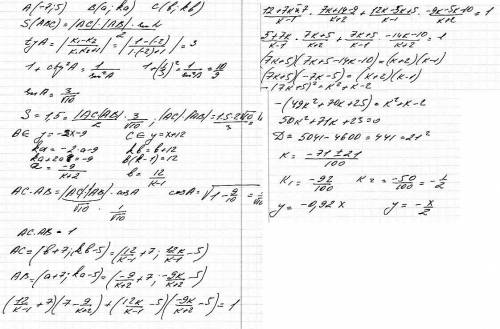 A(-7;5) B(a; ka) C(b; kb)
S(ABC) = |AC|·|AB|·sin A / 2
tg A = |(k₁-k₂)/(k₁·k₂+1)| = |(1-(-2))/(1·(-2)+1)| = 3
1 + ctg²A = 1/sin²A 1 + (1/3)² = 1/sin²A = 10/9
sin A = 3/√10
S = 1,5 = |AC||AB|/2 · 3/√10 ; |AC|·|AB| = 1·5·2√10/3
B ∈ y = -2x-9 C ∈ y = x+12
ka = -2a-9 kb = b+12
ka+2a = -9 b(k-1) = 12
a = -9/(k+2) b = 12/(k-1)
AC·AB = |AC|·|AB|·cos A cos A = √(1-9/10) = 1/√10
√10 · 1/√10
AC·AB = 1
AC = (b+7; kb-5) = (12/(k-1) + 7; 12k/(k-1) - 5)
AB = (a+7; ka-5) = (-9/(k+2) + 7; -9k/(k+2) - 5)
(12/(k-1) + 7)(7 - 9/(k+2)) + (12k/(k-1) - 5)(-9k/(k+2) - 5) = 1
(12+7k-7)/(k-1) · (7k+14-9)/(k+2) + (12k-5k+5)/(k-1) · (-9k-5k-10)/(k+2) = 1
(5+7k)/(k-1) · (7k+5)/(k+2) + (7k+5)/(k-1) · (-14k-10)/(k+2) = 1
(7k+5)(7k+5-14k-10) = (k+2)(k-1)
(7k+5)(-7k-5) = (k+2)(k-1)
-(7k+5)² = k²+k-2
-(49k²+70k+25) = k²+k-2
50k²+71k+23 = 0
D = 5041-4600 = 441 = 21²
k = (-71±21)/100
k₁ = -92/100 k₂ = -50/100 = -1/2
y = -0,92x y = -x/2